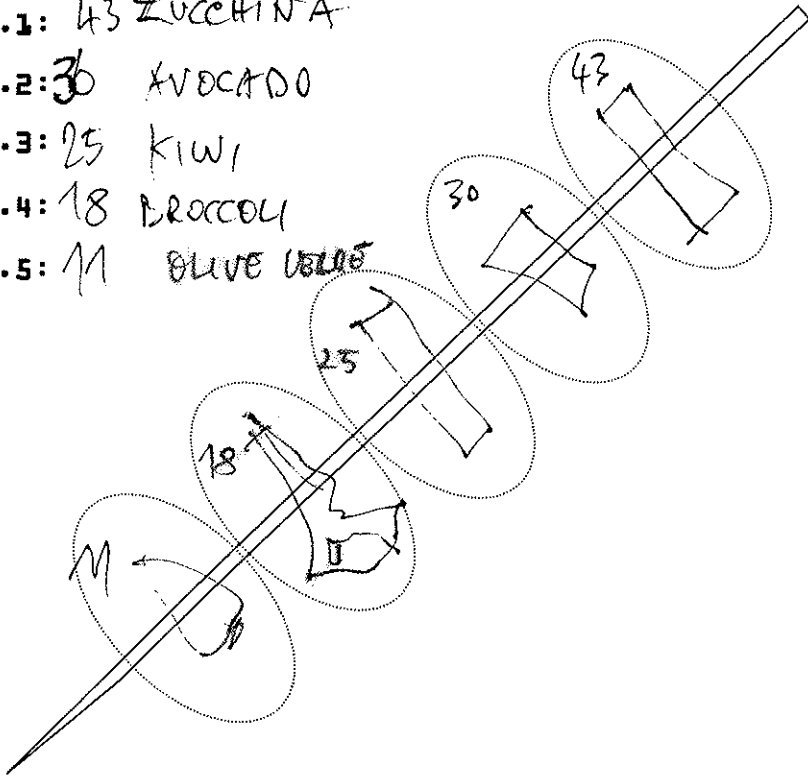 .1: 43 ZUCCHINA
.2: 30 AVOCADO
.3: 25 KIWI
.4: 18 BROCCOLI
.5: 11 OLIVE VERDE
43
30
25
18
11